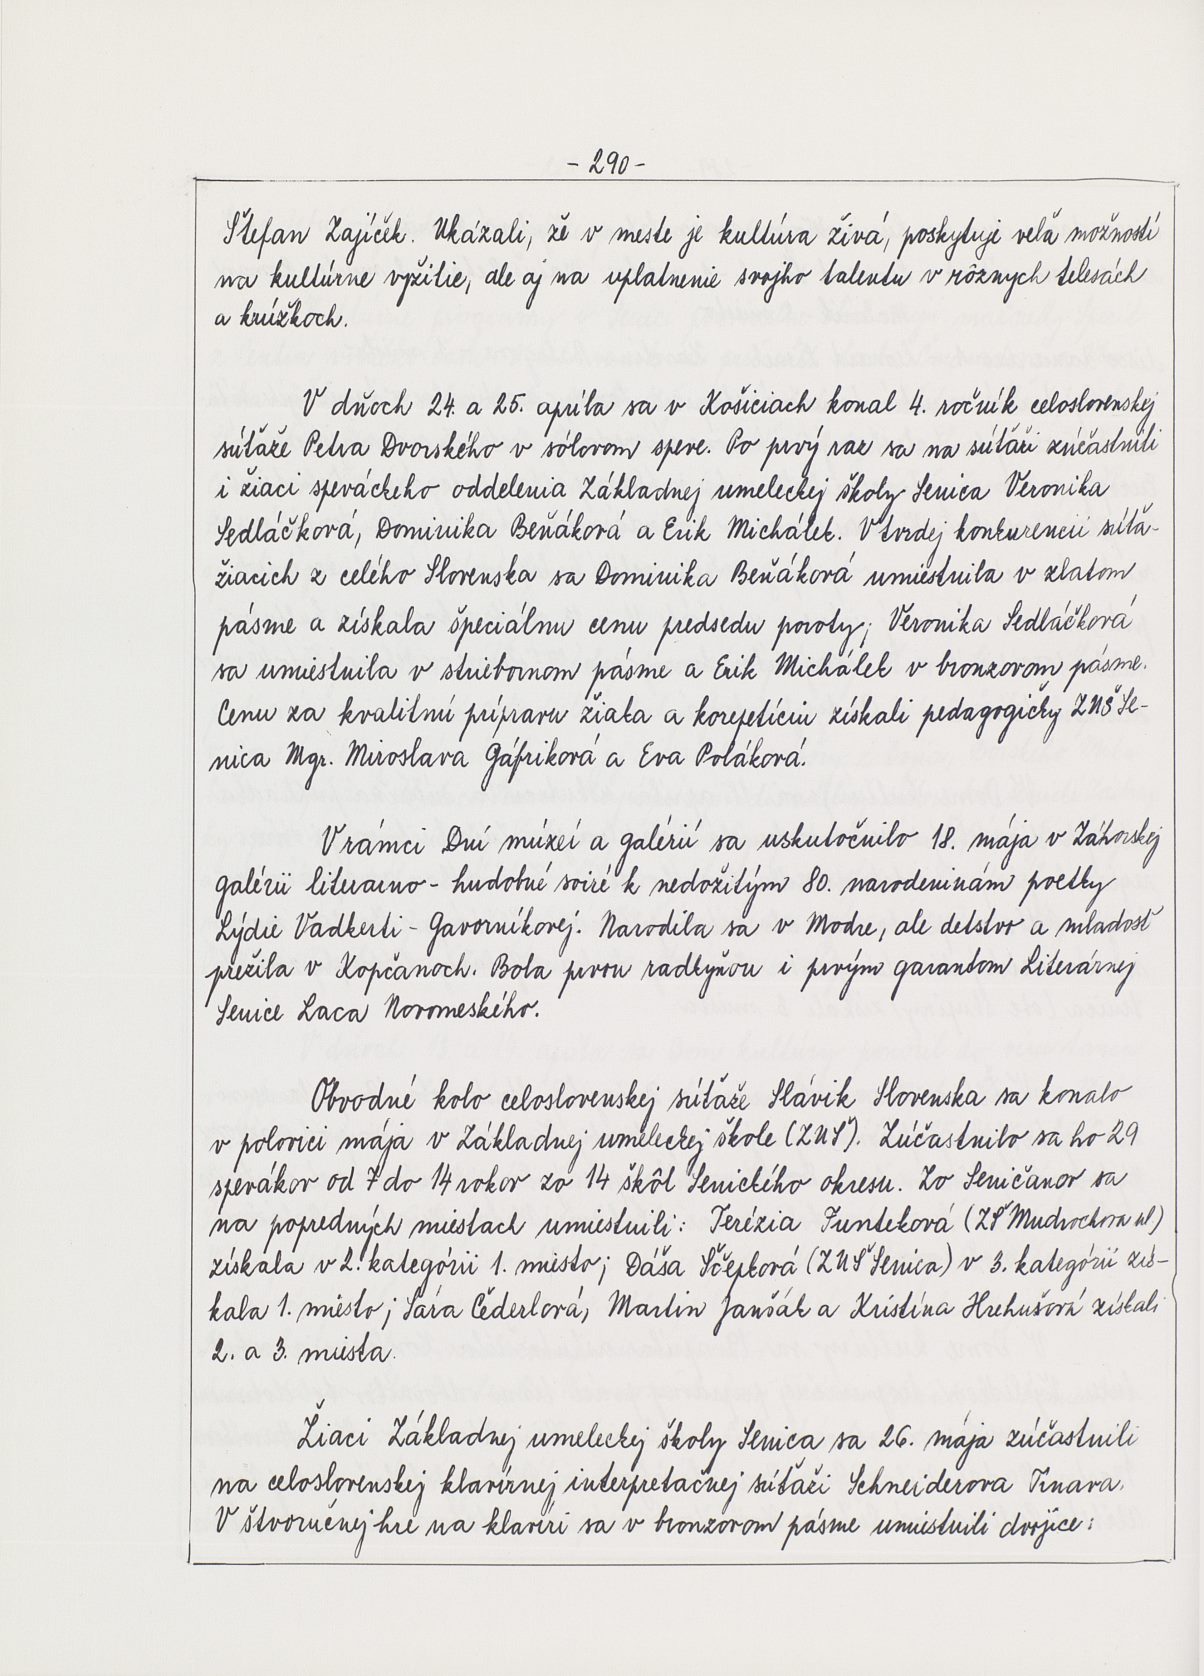 - 290 -
Štefan Zajíček. Ukázali, že v meste je kultúra živá, poskytuje veľa možností
na kultúrne vyžitie, ale aj na uplatnenie svojho talentu v rôznych telesách
a krúžkoch.
V dňoch 24. a 25. apríla sa v Košiciach konal 4. ročník celoslovenskej
súťaže Petra Dvorského v sólovom speve. Po prvý raz sa na súťaži zúčastnili
i žiaci speváckeho oddelenia Základnej umeleckej školy Senica Veronika
Sedláčková, Dominika Beňáková a Erik Michálek. V tvrdej konkurencii súťa-
žiacich z celého Slovenska sa Dominika Beňáková umiestnila v zlatom
pásme a získala špeciálnu cenu predsedu poroty; Veronika Sedláčková
sa umiestnila v striebornom pásme a Erik Michálek v bronzovom pásme.
Cenu za kvalitnú prípravu žiaka a korepetíciu získali pedagogičky ZUŠ Se-
nica Mgr. Miroslava Gáfriková a Eva Poláková.
V rámci Dní múzeí a galérií sa uskutočnilo 18. mája v Záhorskej
galérii literarno - hudobné soiré k nedožitým 80. narodeninám poetky
Lýdie Vadkerti - Gavorníkovej. Narodila sa v Modre, ale detstvo a mladosť
prežila v Kopčanoch. Bola prvou radkyňou i prvým garantom Literárnej
Senice Laca Novomeského.
Obvodné kolo celoslovenskej súťaže Slávik Slovenska sa konalo
v polovici mája v Základnej umeleckej škole (ZUŠ). Zúčastnilo sa ho 29
spevákov od 7 do 14 rokov zo 14 škôl Senického okresu. Zo Seničanov sa
na popredných miestach umiestnili: Terézia Funteková (ZŠ Mudrochova ul)
získala v 2. kategórii 1. miesto; Dáša Sčepková (ZUŠ Senica) v 3. kategórii zís-
kala 1. miesto; Sára Čéderlová, Martin Janšák a Kristína Hrehušová získali
2. a 3. miesta.
Žiaci Základnej umeleckej školy Senica sa 26. mája zúčastnili
na celoslovenskej klavírnej interpretačnej súťaži Schneiderova Trnava.
V štvorručnej hre na klavíri sa v bronzovom pásme umiestnili dvojice: